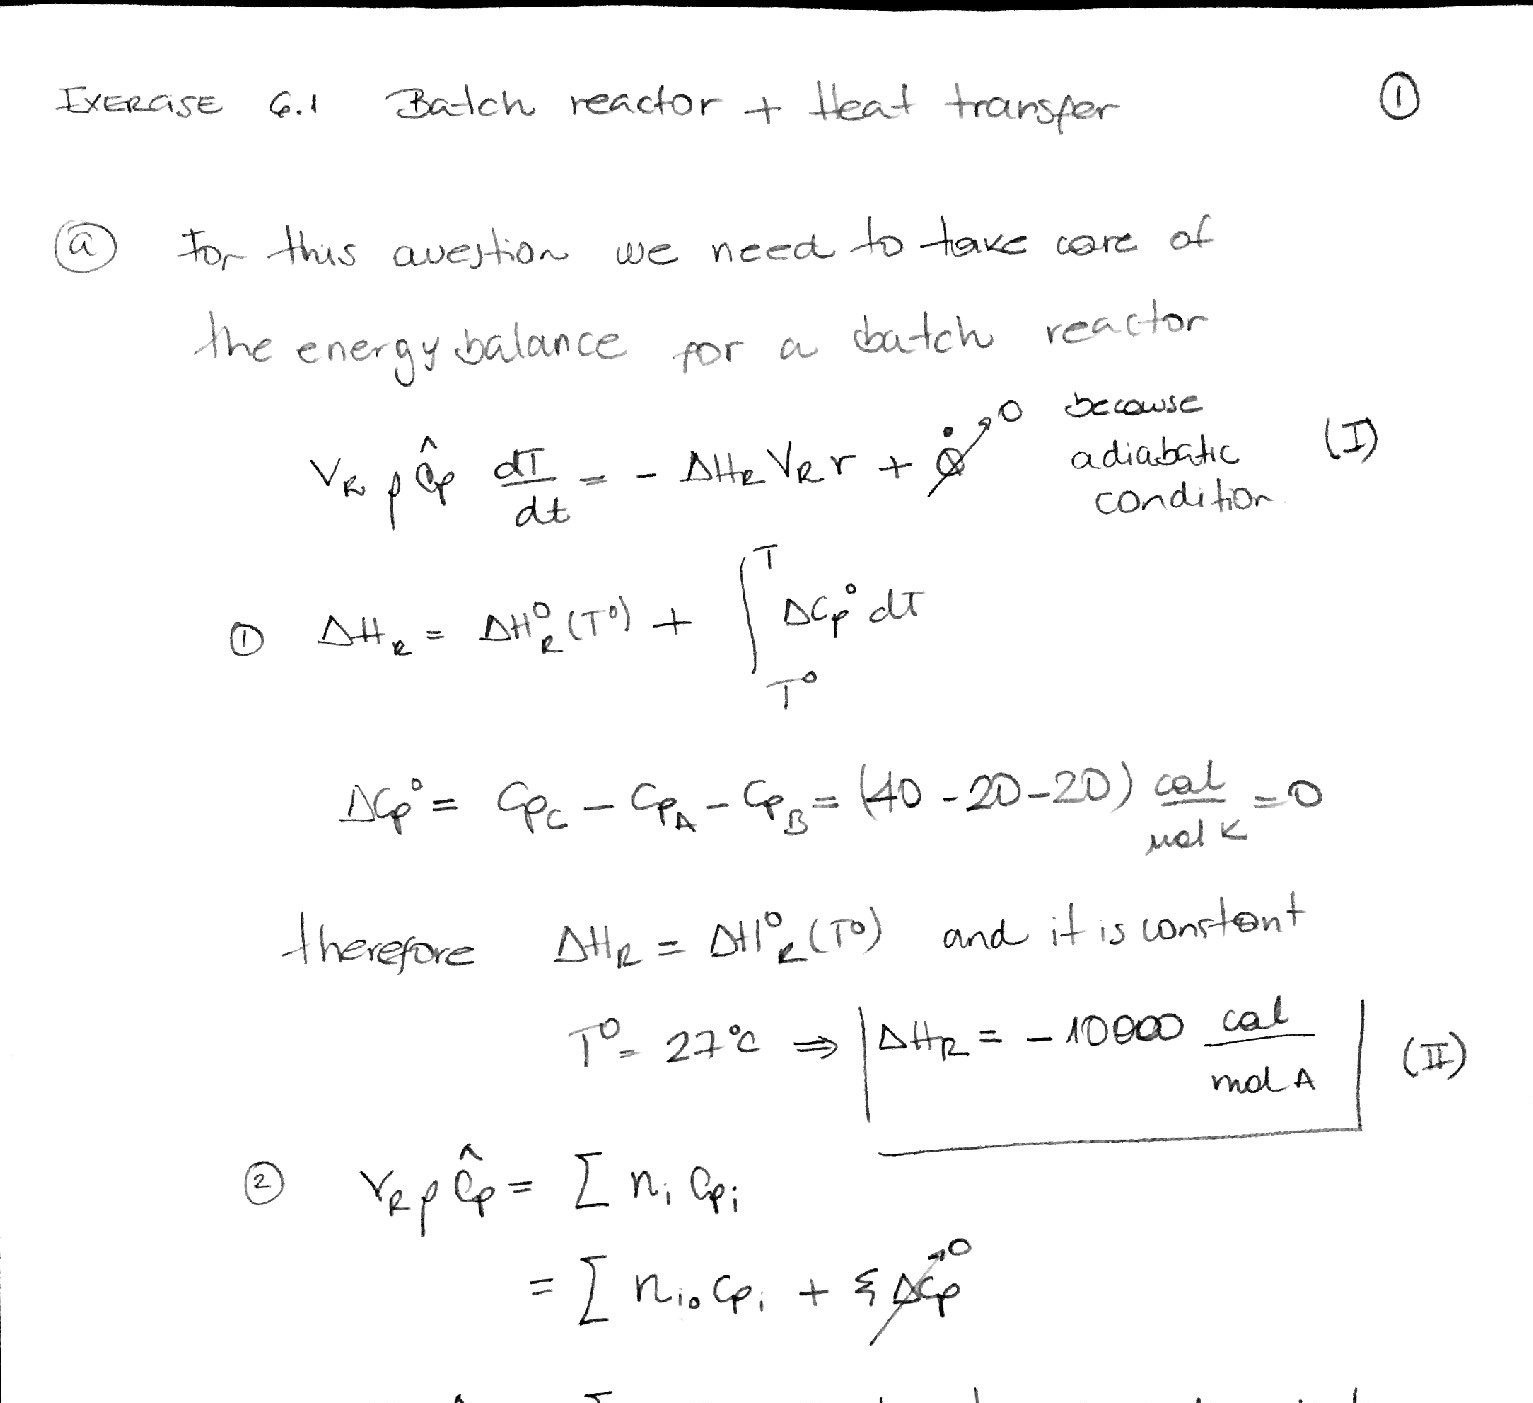 EXERCISE 6.1 Batch reactor + Heat transfer ①
ⓐ For this question we need to take care of
the energy balance for a batch reactor
V_R ρ Ĉp dT/dt = - ΔH_R V_R r + Q̇ → 0 because adiabatic condition (I)
① ΔH_R = ΔH°_R (T°) + ∫_{T°}^{T} ΔCp° dT
ΔCp° = Cp_C - Cp_A - Cp_B = (40 - 20 - 20) cal/mol K = 0
therefore ΔH_R = ΔH°_R (T°) and it is constant
T° = 27°C ⇒ ΔH_R = - 10000 cal/mol A (II)
② V_R ρ Ĉp = Σ n_i Cp_i
= Σ n_io Cp_i + ξ ΔCp → 0